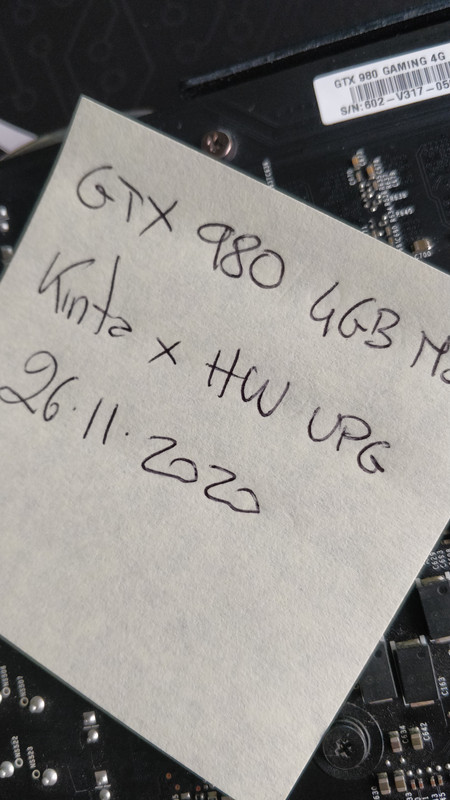 GTX 980 GAMING 4G
S/N:602-V317-05
GTX 980 4GB
Kinta x HW UPG
26.11.2020